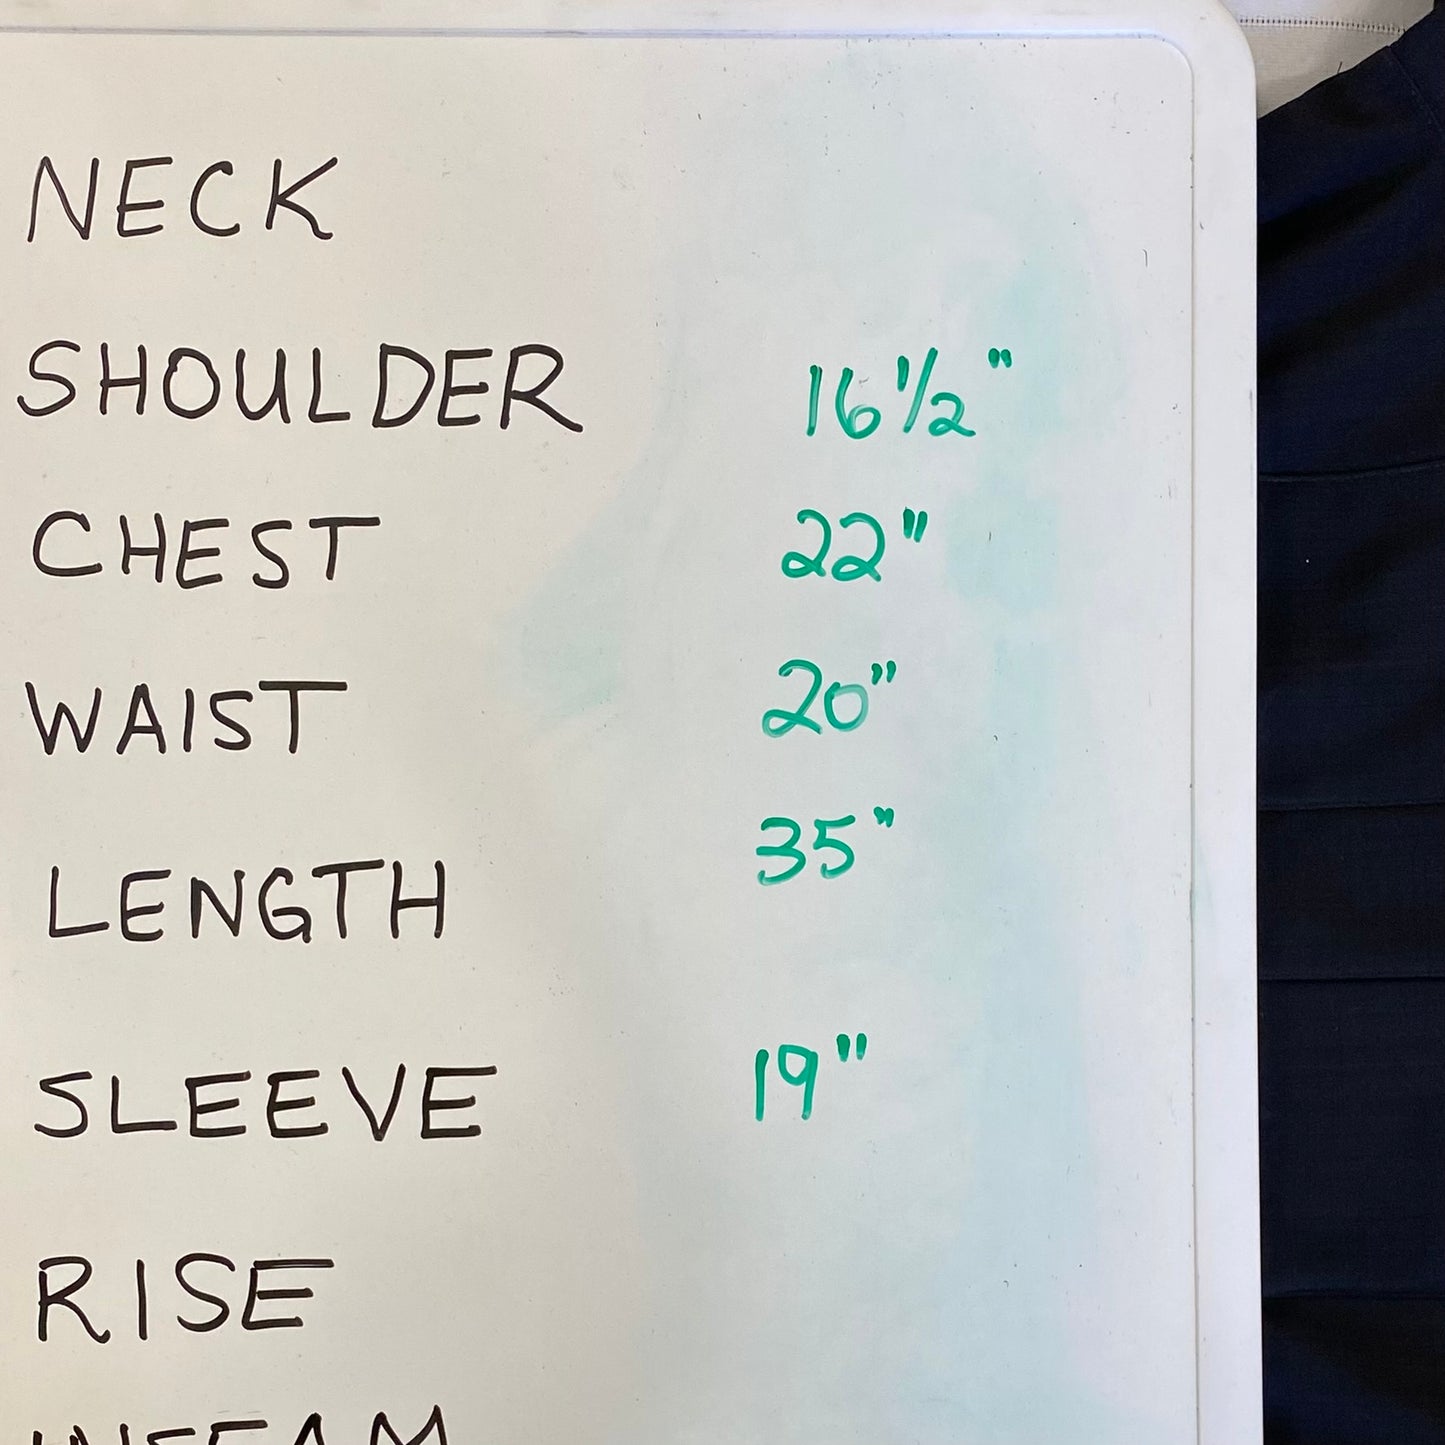 NECK
SHOULDER 16 1/2"
CHEST 22"
WAIST 20"
LENGTH 35"
SLEEVE 19"
RISE
INSEAM